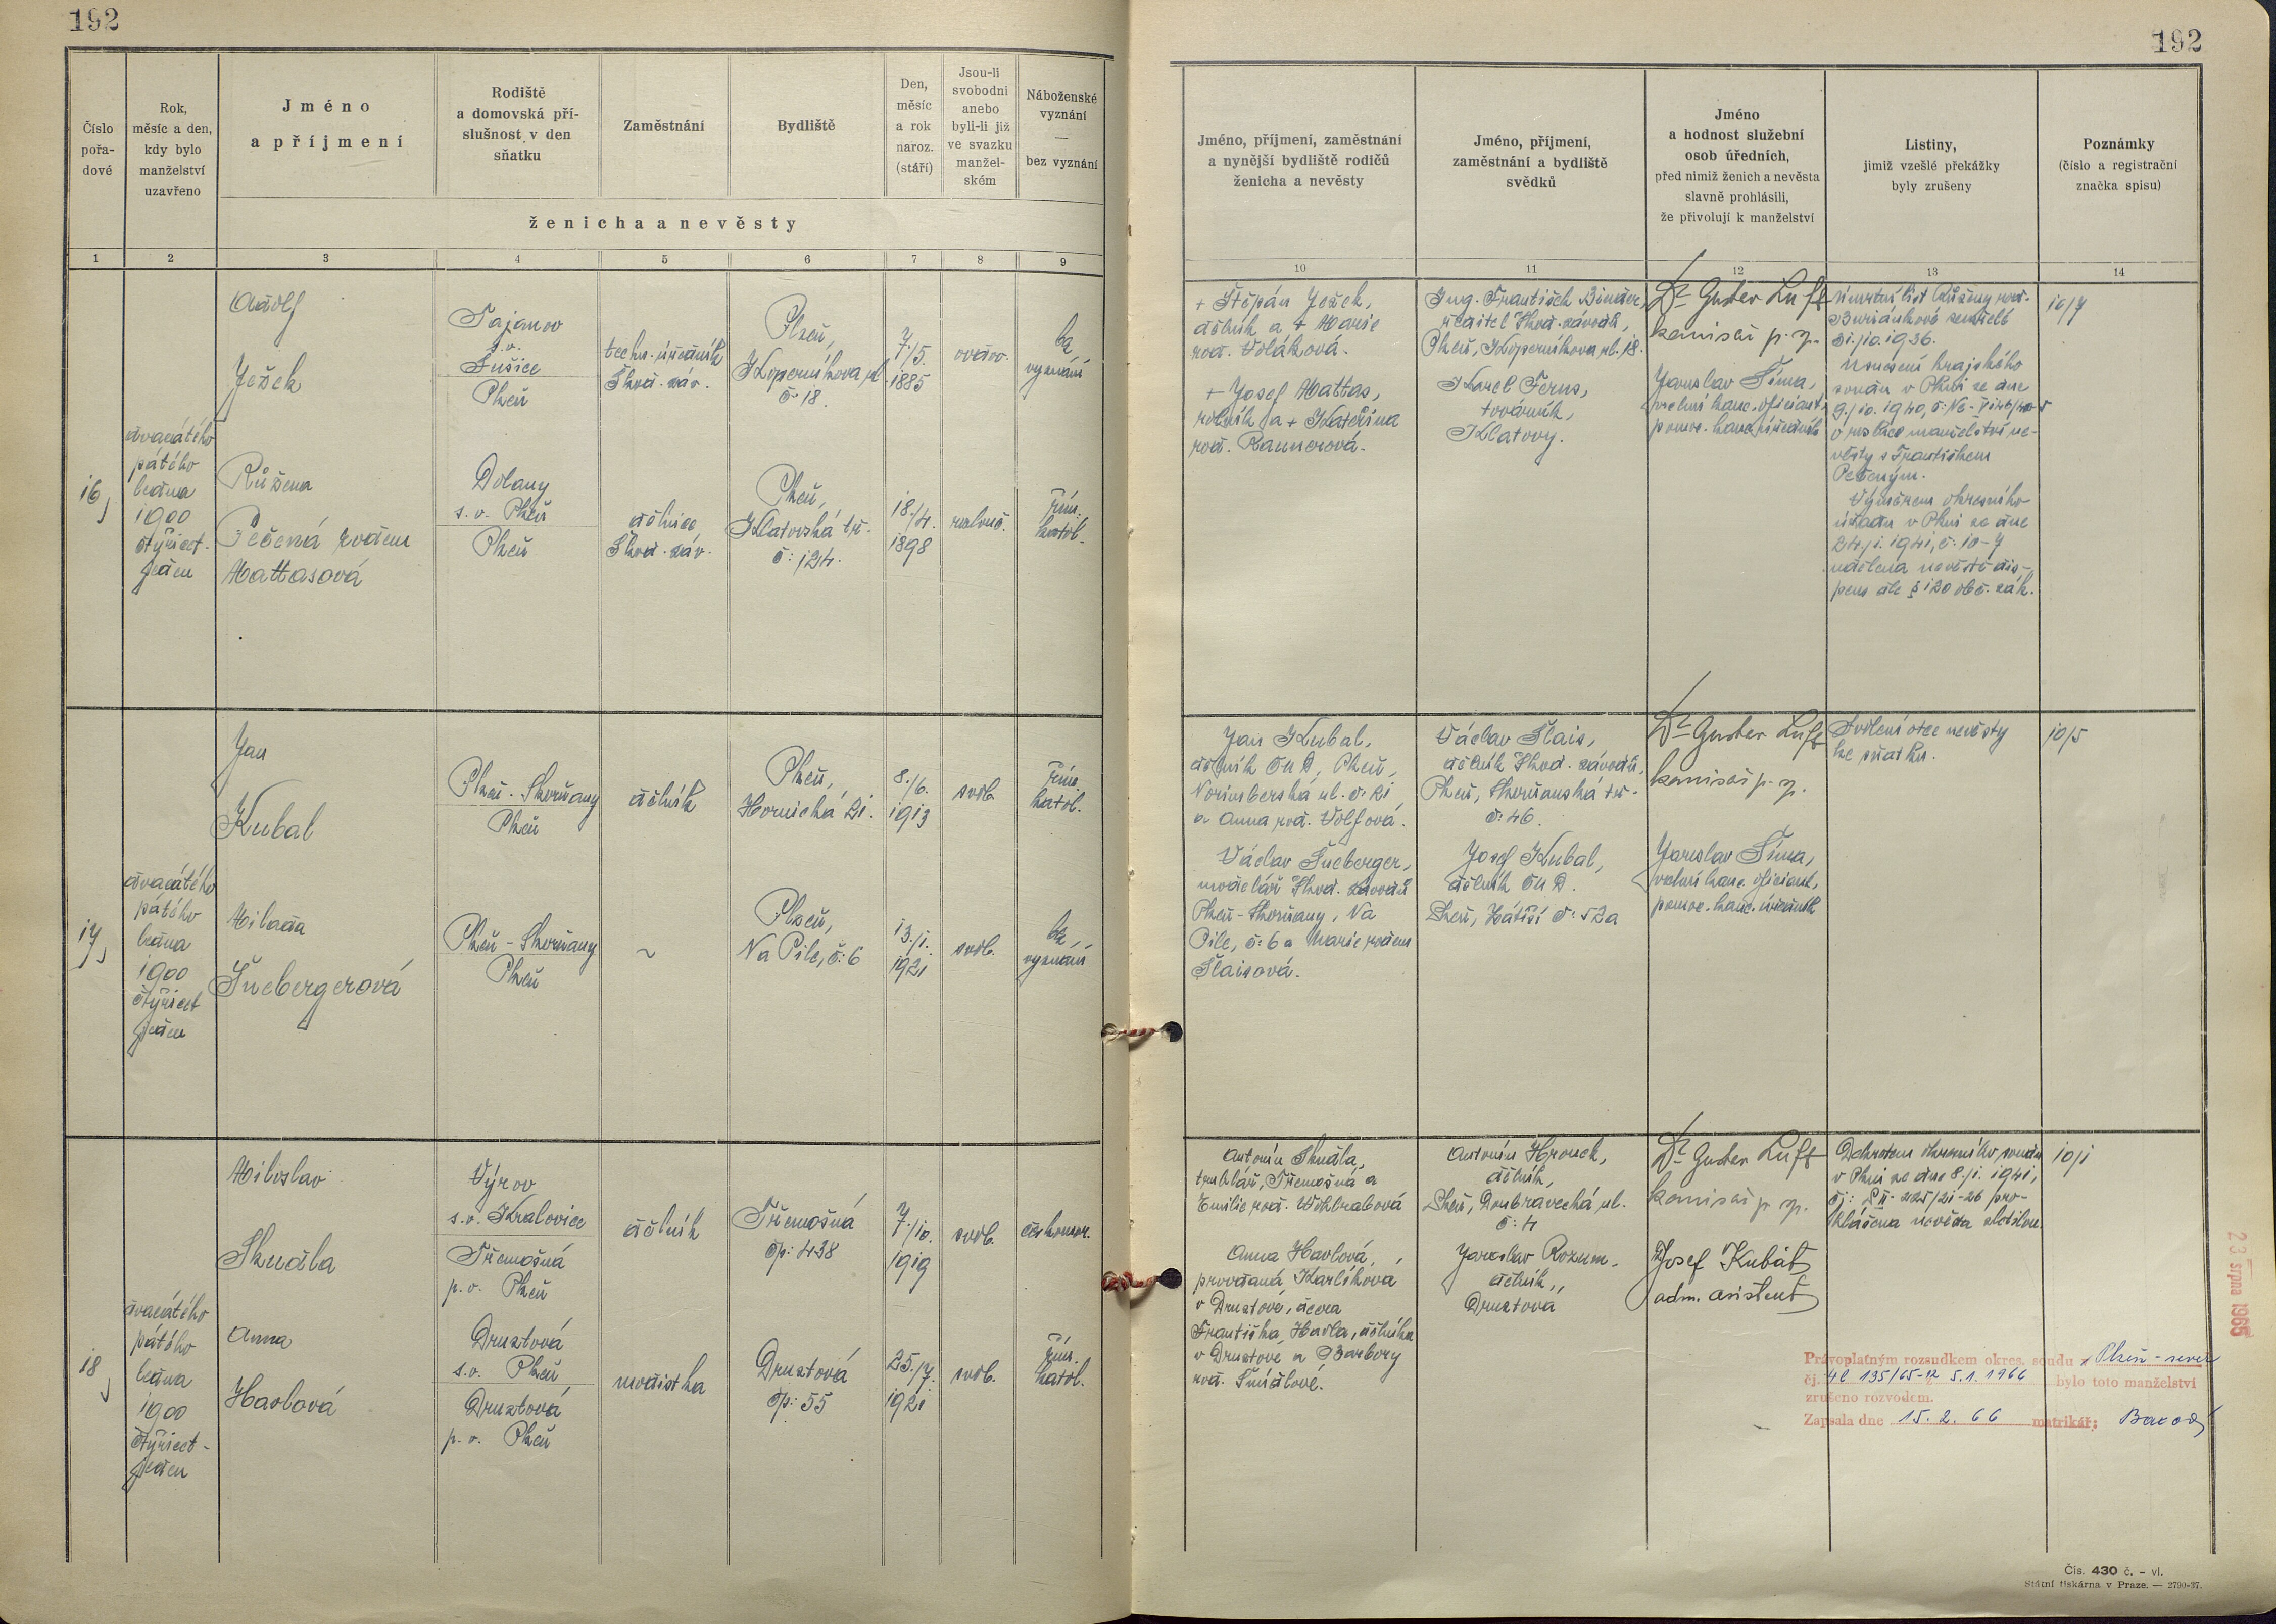 192
192
Číslo pořa-dové
Rok, měsíc a den, kdy bylo manželství uzavřeno
Jméno a příjmení
Rodiště a domovská pří-slušnost v den sňatku
Zaměstnání
Bydliště
Den, měsíc a rok naroz. (stáří)
Jsou-li svobodni anebo byli-li již ve svazku manžel-ském
Náboženské vyznání — bez vyznání
ženicha a nevěsty
1 2 3 4 5 6 7 8 9
Jméno, příjmení, zaměstnání a nynější bydliště rodičů ženicha a nevěsty
Jméno, příjmení, zaměstnání a bydliště svědků
Jméno a hodnost služební osob úředních, před nimiž ženich a nevěsta slavně prohlásili, že přivolují k manželství
Listiny, jimiž vzešlé překážky byly zrušeny
Poznámky (číslo a registrační značka spisu)
10 11 12 13 14
16
dvacátého
pátého
ledna
1900
čtyřicet-
jeden
Adolf
Ježek
Tajanov
s.o.
Sušice
Plzeň
techn. úředník
Škod. záv.
Plzeň,
Koperníkova ul
č. 18.
7./5.
1885
ovdov.
bez
vyznání
Růžena
Pečená rodem
Mattasová
Dolany
s.o. Plzeň
Plzeň
dělnice
Škod. záv.
Plzeň,
Klatovská tř.
č: 124.
18./4.
1898
rozlouč.
řím.
katol.
+ Štěpán Ježek,
dělník a + Marie
rod. Voláková.
+ Josef Mattas,
rolník a + Kateřina
rod. Rannerová.
Ing. František Binder,
ředitel Škod. závodů,
Plzeň, Koperníkova ul. 18.
Karel Ferus,
továrník,
Klatovy.
Dr Gustav Luft
komisař p. sp.
Jaroslav Šíma,
kanc. oficiant,
pomoc. kanc. úředník
Úmrtní list Růženy rod.
Buriánkové zemřelé
31./10.1936.
Usnesení krajského
soudu v Plzni ze dne
9./10. 1940, č:
o rozluce manželství ne-
věsty s Františkem
Pečeným.
Výměrem okresního
úřadu v Plzni ze dne
24./1. 1941, č: 10-7
udělena nevěstě dis-
pens dle § 120 obč. zák.
10/7
17
dvacátého
pátého
ledna
1900
čtyřicet
jeden
Jan
Kubal
Plzeň - Skvrňany
Plzeň
dělník
Plzeň,
Hornická 21.
8./6.
1913
svob.
řím.
katol.
Milada
Šnebergerová
Plzeň - Skvrňany
Plzeň
~
Plzeň,
Na Pile, č: 6
13./1.
1921
svob.
bez
vyznání
Jan Kubal,
dělník ČMD, Plzeň,
Norimberská ul. č: 21
a Anna rod. Wolfová.
Václav Šneberger,
modelář Škod. závodů
Plzeň - Skvrňany, Na
Pile, č: 6 a Marie rodem
Šlaisová.
Václav Šlais,
dělník Škod. závodů,
Plzeň, Skvrňanská tř.
č: 46.
Josef Kubal,
dělník ČMD.
Plzeň, Hátiší č: 52a
Dr Gustav Luft
komisař p. sp.
Jaroslav Šíma,
kanc. oficiant,
pomoc. kanc. úředník
Svolení otce nevěsty
ke sňatku.
10/5
18
dvacátého
pátého
ledna
1900
čtyřicet-
jeden
Miloslav
Skuála
Výrov
s.o. Kralovice
Třemošná
p.o. Plzeň
dělník
Třemošná
čp: 438
7./10.
1919
svob.
českomor.
Anna
Havlová
Druztová
s.o. Plzeň
Druztová
p.o. Plzeň
modistka
Druztová
čp: 55
25./7.
1921
svob.
řím.
katol.
Antonín Skuála,
truhlář, Třemošná a
Emilie rod. Vokhrabová
Anna Havlová,
provdaná Karlíková
v Druztové, dcera
Františka Havla, dělníka
v Druztové a Barbory
rod. Šmídlové.
Antonín Hrouch,
dělník,
Plzeň, Doubravecká ul.
č: 4
Jaroslav Rozum,
dělník,
Druztová
Dr Gustav Luft
komisař p. sp.
Josef Kubát
adm. asistent
Dekretem okresního soudu
v Plzni ze dne 8./1. 1941,
čj: pro-
hlášena nevěsta zletilou.
10/1
23. srpna 1965
Právoplatným rozsudkem okres. soudu v Plzeň-sever
čj. 4C 135/65-12 5.1.1966 bylo toto manželství
zrušeno rozvodem.
Zapsala dne 15.2.66 matrikář:
Čís. 430 č. - vl.
Státní tiskárna v Praze. — 2790-37.